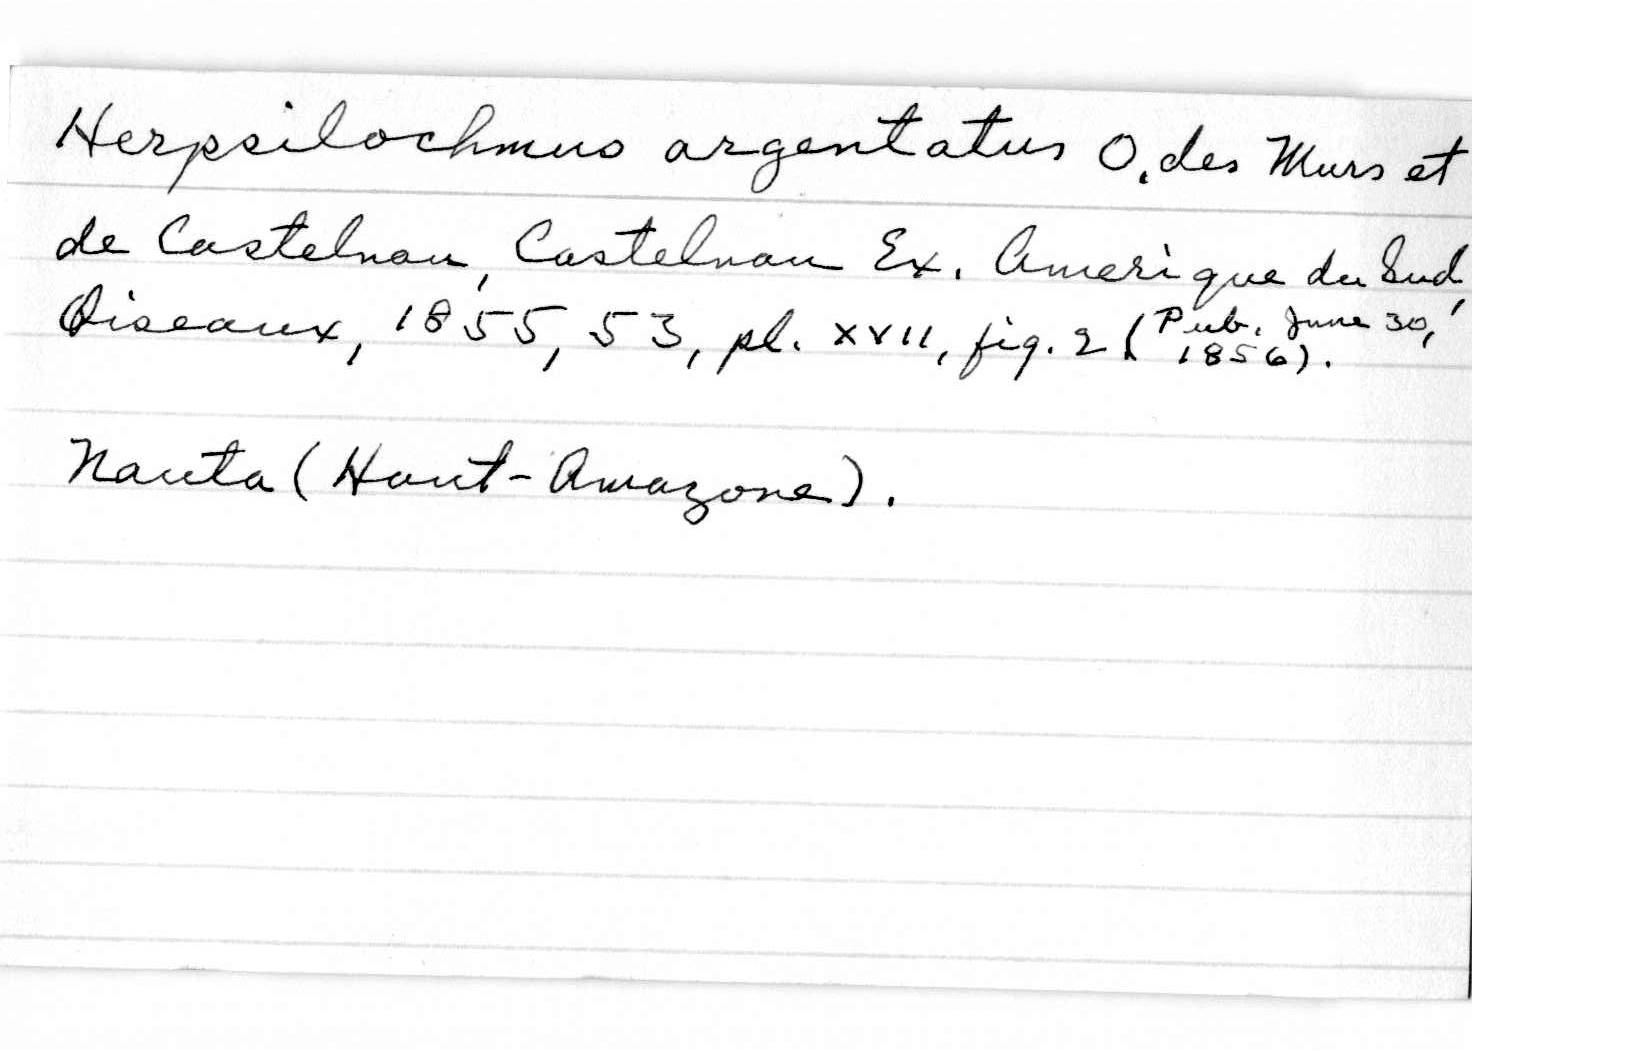 Herpsilochmus argentatus O. des Murs et
de Castelnau, Castelnau Ex. Amerique du Sud,
Oiseaux, 1855, 53, pl. XVII, fig. 2 (Pub. June 30,
1856).
Nauta (Haut-Amazone).